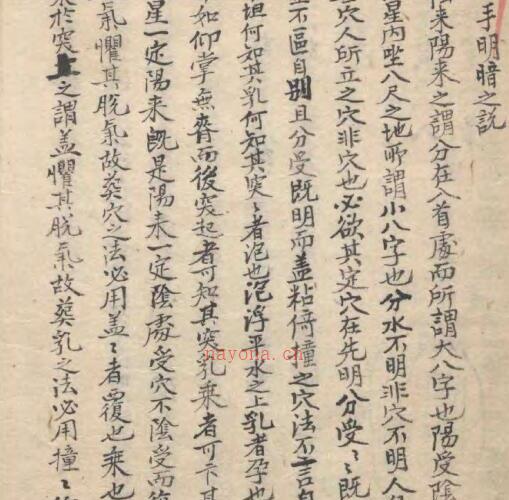 手明暗之説
來陽來之謂分在入首處而所謂大八字也陽受陰
星內坐八尺之地所謂小八字也分水不明非穴不明人
穴人所立之穴非穴也必欲其定穴在先明分受〻既
不區自别且分受既明而盖粘倚撞之穴法不言自
坦何如其乳何如其突〻者泡也泡浮平水之上乳者孕也
如仰掌無脊而後突起者可知其突乳乘者可卞其
星一定陽來既是陽來一定陰處受穴不陰受而
氣懼其脱氣故葬穴之法必用盖〻者覆也乘也
於突上之謂盖懼其脱氣故葬乳之法必用撞〻
nayona.cn